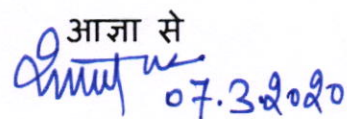 आज्ञा से
07.3.2020